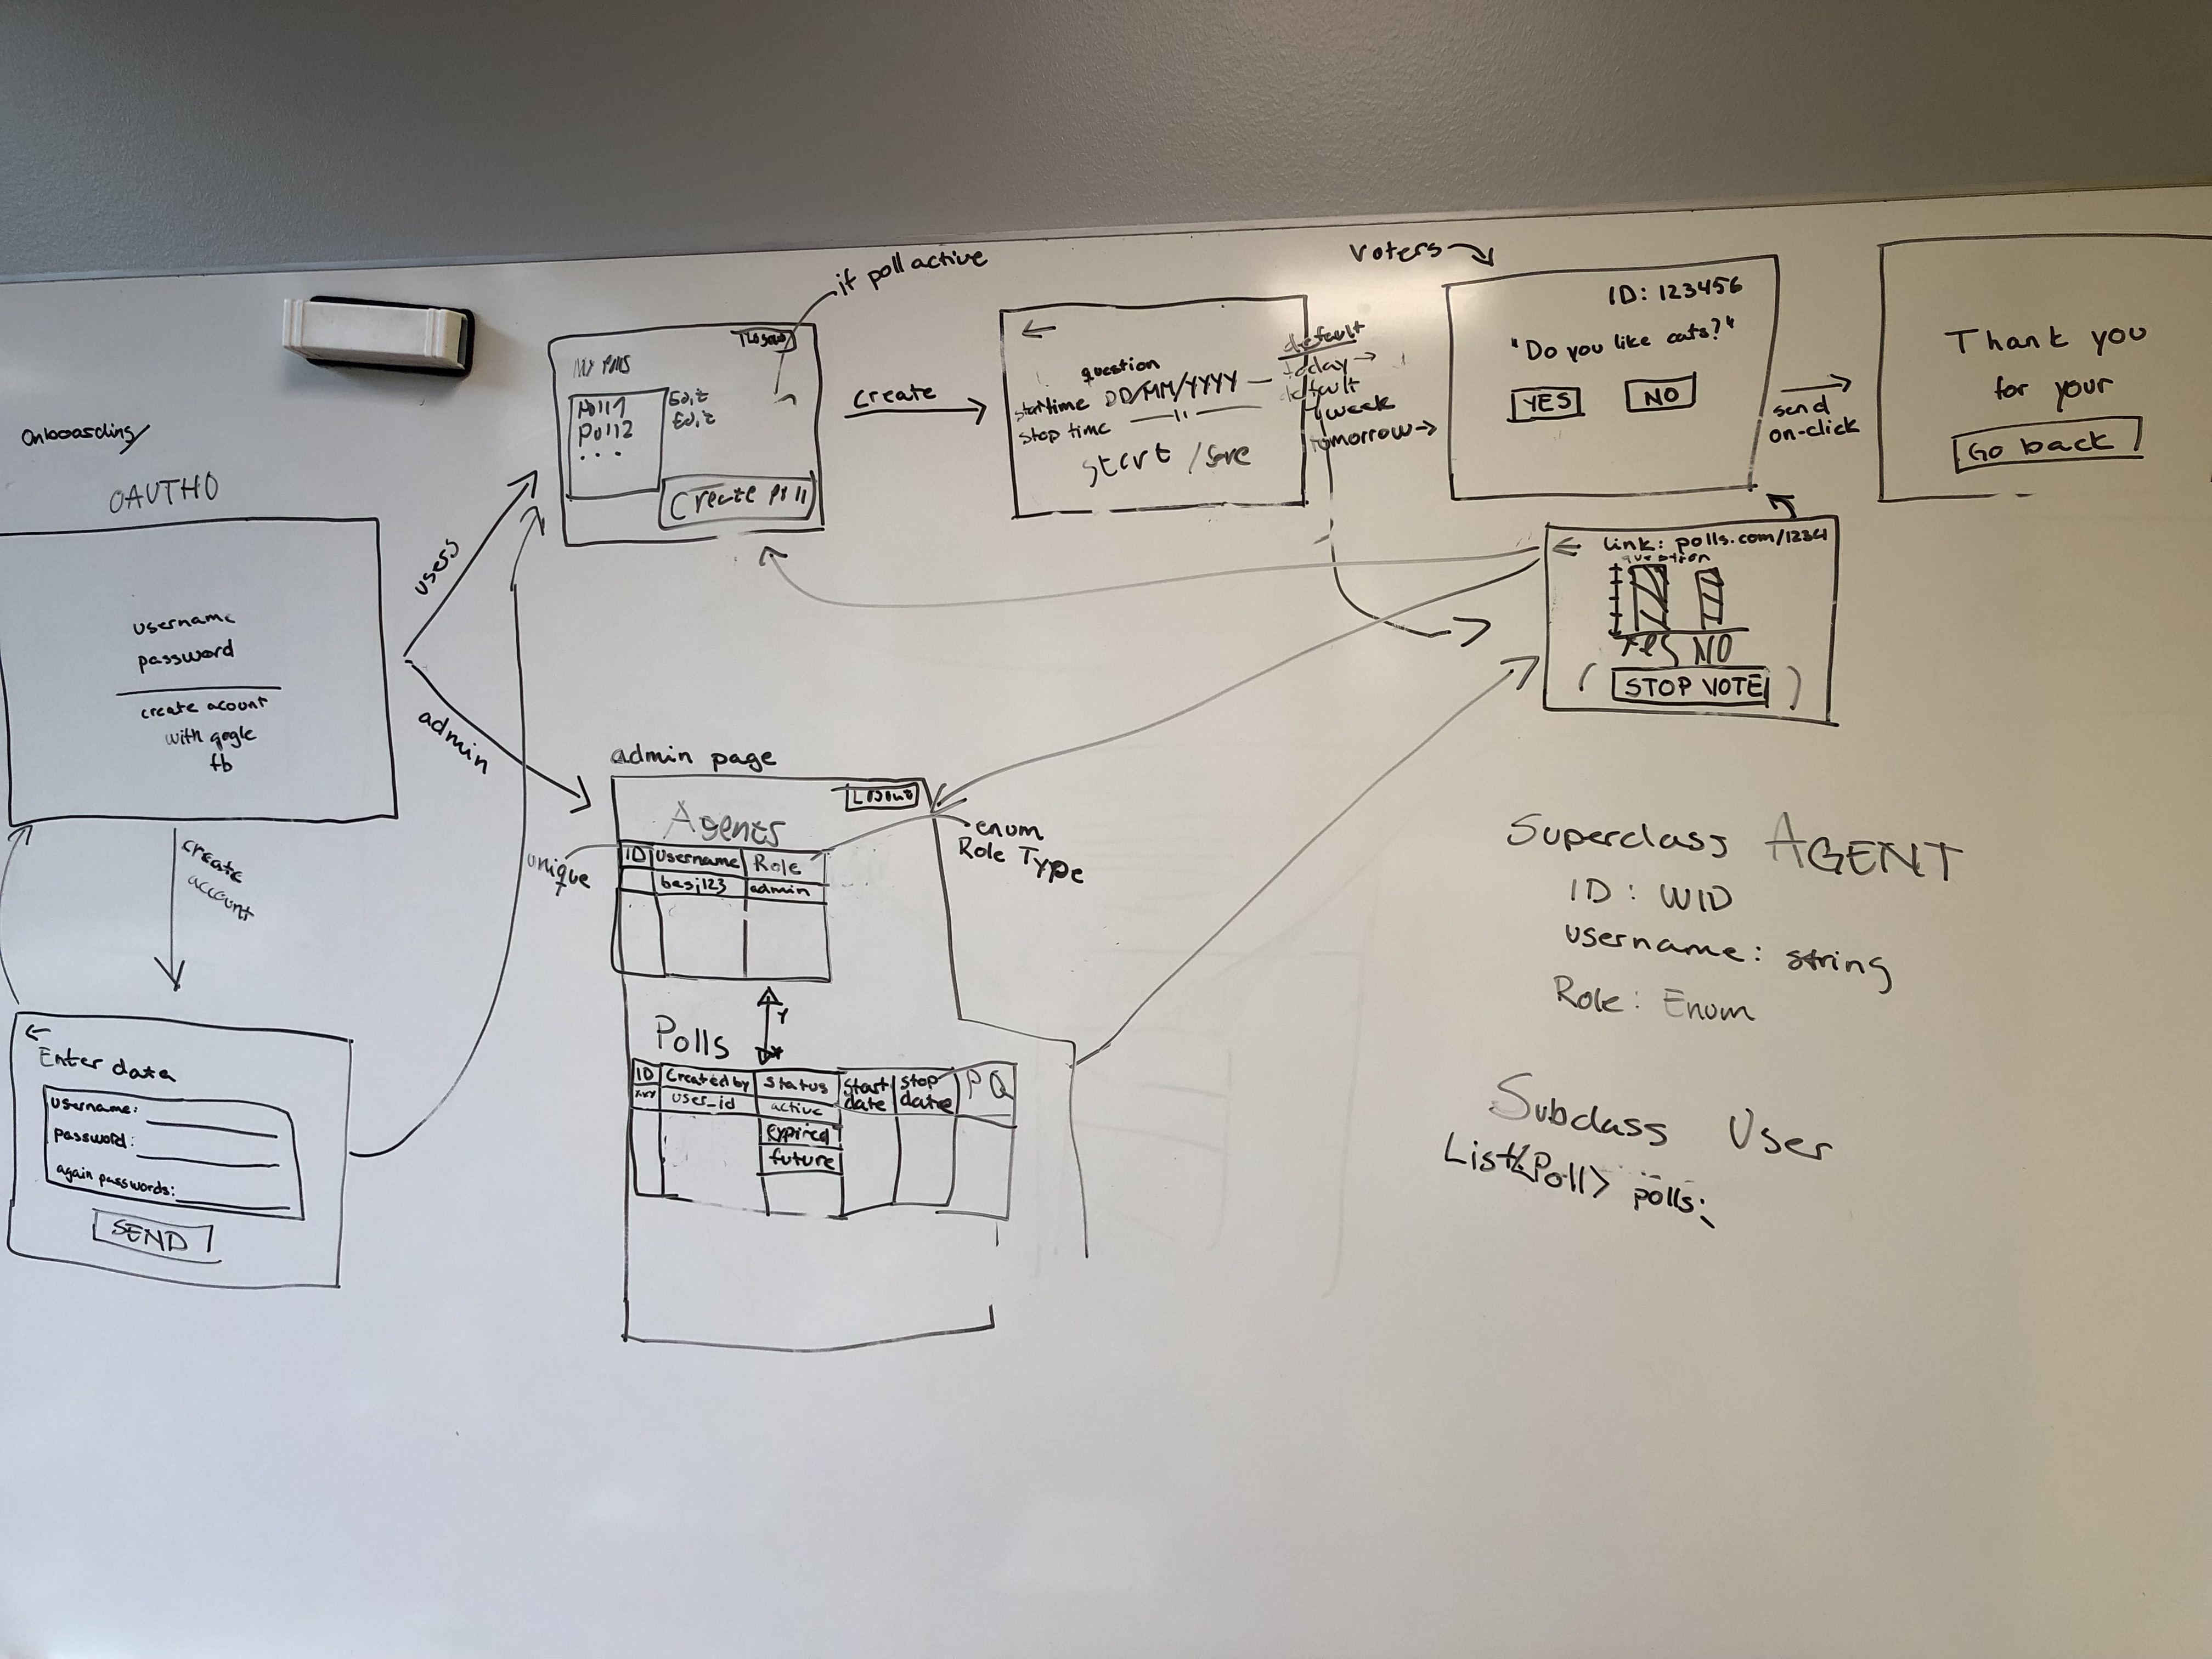 Onboarding
OAUTH0
username
password
create acount
with gogle
fb
create
account
←
Enter data
username:
password:
again passwords:
SEND
users
admin
if poll active
MY Polls
Poll1
Poll2
...
Edit
Edit
Create Poll
create
←
question
startime DD/MM/YYYY —
stop time — 11 —
start / save
default
today →
default
1 week
tomorrow →
voters
ID: 123456
"Do you like cats?"
YES
NO
send
on-click
Thank you
for your
Go back
← link: polls.com/1234
question
YES NO
( STOP VOTE )
admin page
Logout
Agents
unique
ID Username Role
basj123 admin
enum
Role Type
Y
X
Polls
ID Created by Status Start date stop date PQ
xxx user_id active
expired
future
Superclass AGENT
ID: WID
username: string
Role: Enum
Subclass User
List<Poll> polls;